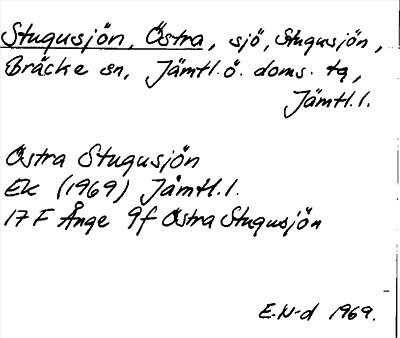 Stugusjön, Östra, sjö, Stugusjön,
Bräcke sn, Jämtl. ö. doms. tg,
Jämtl. l.
Östra Stugusjön
Ek (1969) Jämtl. l.
17 F Ånge 9f Östra Stugusjön
E.N-d 1969.